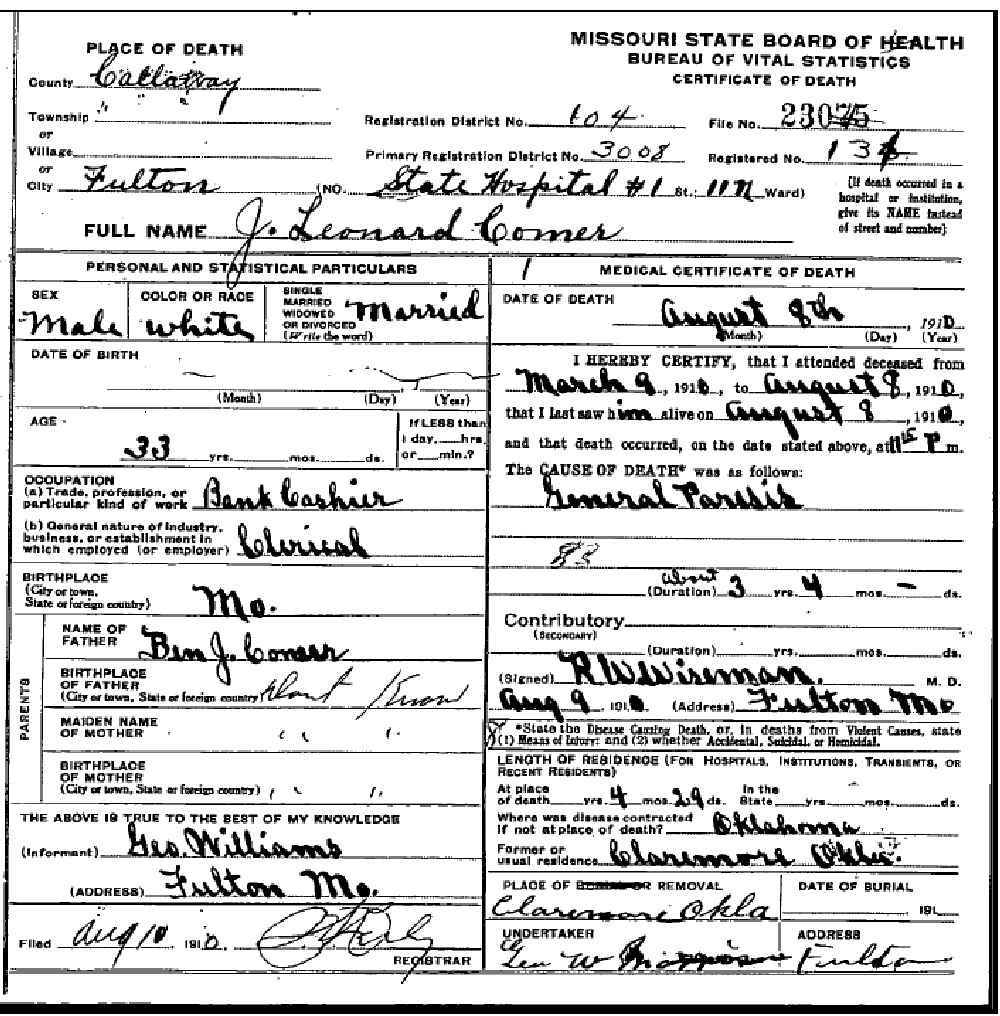 MISSOURI STATE BOARD OF HEALTH
BUREAU OF VITAL STATISTICS
CERTIFICATE OF DEATH
PLACE OF DEATH
County Callaway
Township " "
or
Village
or
City Fulton (NO. State Hospital #1 St.; Ward)
Registration District No. 104 File No. 23075
Primary Registration District No. 3008 Registered No. 13
(If death occurred in a
hospital or institution,
give its NAME instead
of street and number)
FULL NAME J. Leonard Comer
PERSONAL AND STATISTICAL PARTICULARS
SEX
Male
COLOR OR RACE
White
SINGLE
MARRIED
WIDOWED
OR DIVORCED
(Write the word)
Married
DATE OF BIRTH
(Month) (Day) (Year)
AGE
33 yrs. mos. ds.
If LESS than
1 day, hrs.
or min.?
OCCUPATION
(a) Trade, profession, or
particular kind of work Bank Cashier
(b) General nature of industry,
business, or establishment in
which employed (or employer) Clerical
BIRTHPLACE
(City or town,
State or foreign country) Mo.
PARENTS
NAME OF
FATHER Ben J. Comer
BIRTHPLACE
OF FATHER
(City or town, State or foreign country) Dont Know
MAIDEN NAME
OF MOTHER " "
BIRTHPLACE
OF MOTHER
(City or town, State or foreign country) " "
THE ABOVE IS TRUE TO THE BEST OF MY KNOWLEDGE
(Informant) Geo. Williams
(ADDRESS) Fulton Mo.
Filed Aug 10 1910
REGISTRAR
1
MEDICAL CERTIFICATE OF DEATH
DATE OF DEATH
August 8th, 1910
(Month) (Day) (Year)
I HEREBY CERTIFY, that I attended deceased from
March 9, 1910, to August 8, 1910,
that I last saw him alive on August 8, 1910
and that death occurred, on the date stated above, at P m.
The CAUSE OF DEATH* was as follows:
General Paresis
83
(Duration) About 3 yrs. 4 mos. - ds.
Contributory
(SECONDARY)
(Duration) yrs. mos. ds.
(Signed) R W Wiseman. M. D.
Aug 9 1910 (Address) Fulton Mo
*State the Disease Causing Death, or, in deaths from Violent Causes, state
(1) Means of Injury; and (2) whether Accidental, Suicidal, or Homicidal.
LENGTH OF RESIDENCE (FOR HOSPITALS, INSTITUTIONS, TRANSIENTS, OR
RECENT RESIDENTS)
At place
of death yrs. 4 mos. 29 ds. In the
State yrs. mos. ds.
Where was disease contracted
if not at place of death? Oklahoma
Former or
usual residence Claremore Okla.
PLACE OF BURIAL OR REMOVAL
Claremore Okla
DATE OF BURIAL
191
UNDERTAKER
Geo W
ADDRESS
Fulton